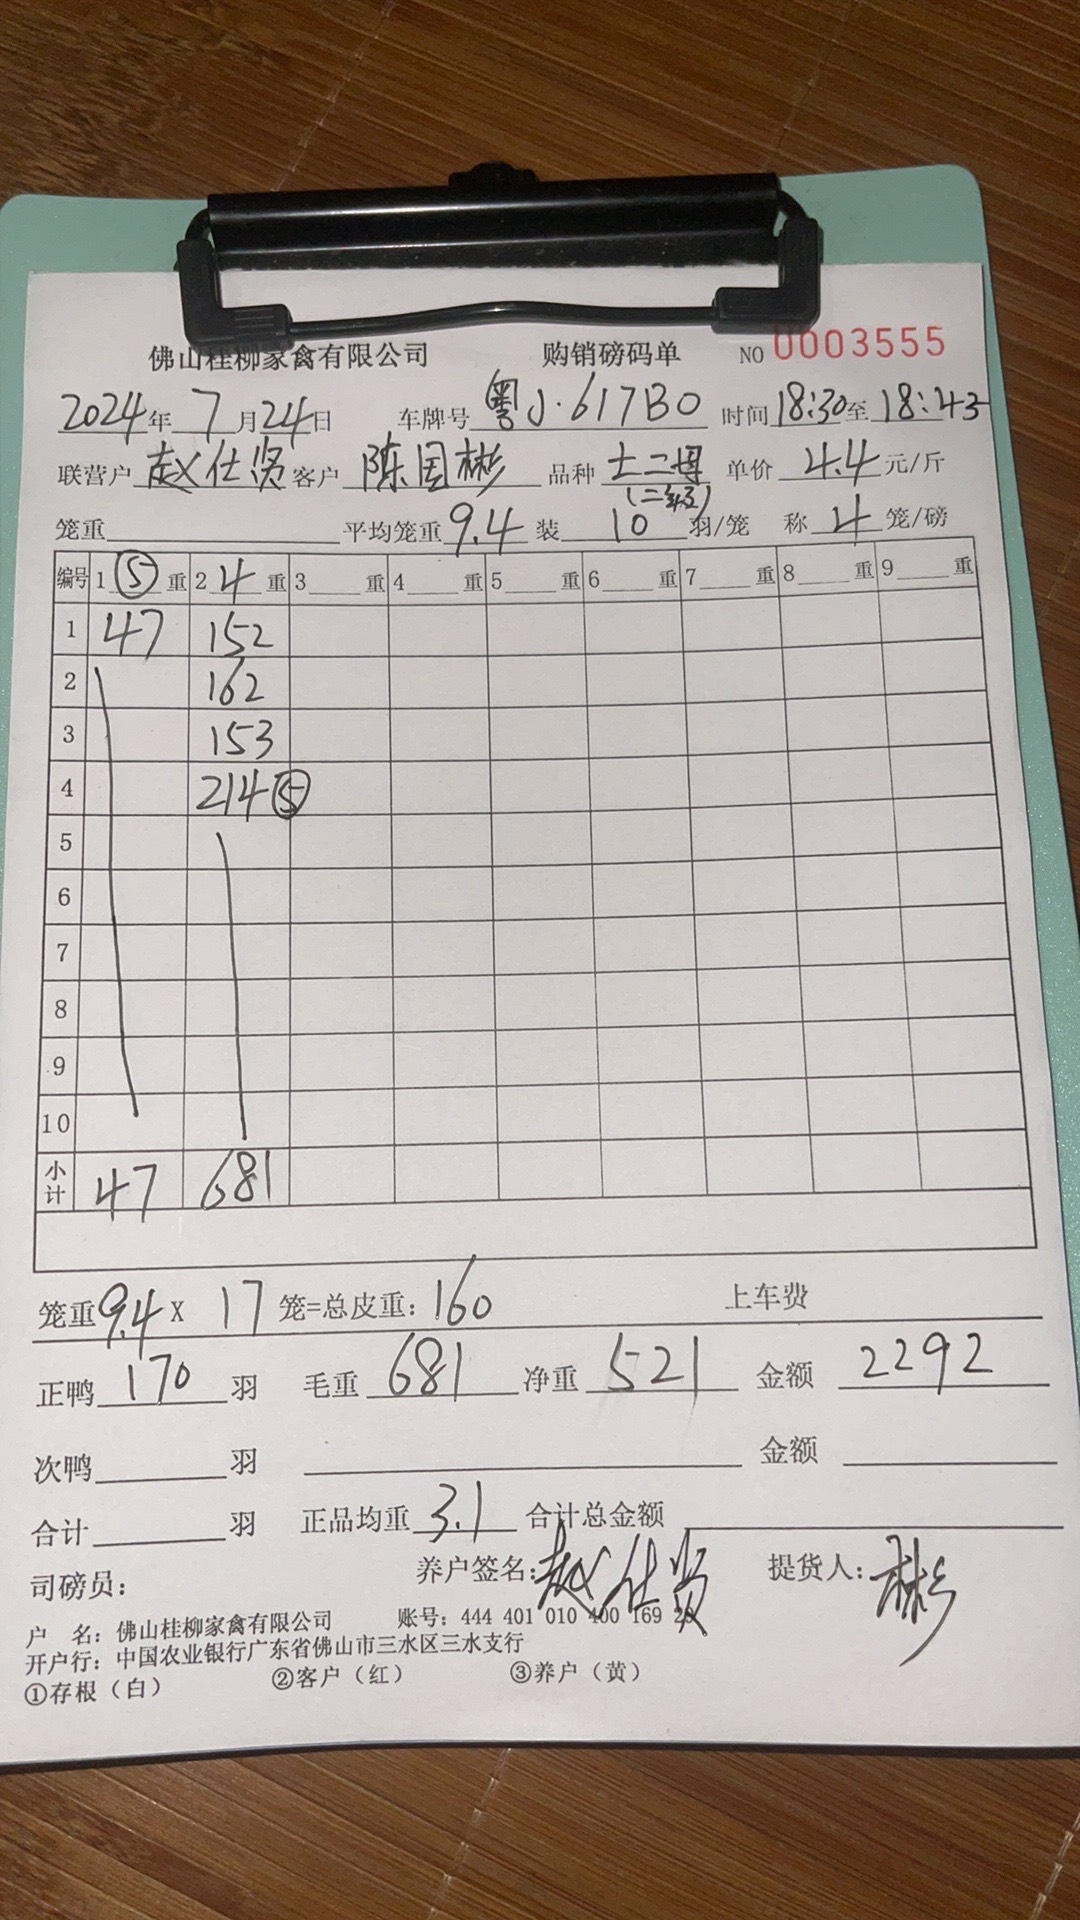 佛山桂柳家禽有限公司 购销磅码单 NO 0003555
2024年7月24日 车牌号 粤J·617B0 时间 18:30至18:43
联营户 赵仕贤 客户 陈国彬 品种 土二 单价 4.4 元/斤
(二级)
笼重 平均笼重 9.4 装 10 羽/笼 称 4 笼/磅
编号 1 ⑤ 重 2 4 重 3 重 4 重 5 重 6 重 7 重 8 重 9 重
1 47 152
2 162
3 153
4 214⑤
5
6
7
8
9
10
小计 47 681
笼重 9.4 X 17 笼=总皮重: 160 上车费
正鸭 170 羽 毛重 681 净重 521 金额 2292
次鸭 羽 金额
合计 羽 正品均重 3.1 合计总金额
司磅员: 养户签名: 赵仕贤 提货人: 彬
户 名: 佛山桂柳家禽有限公司 账号: 444 401 010 400 169
开户行: 中国农业银行广东省佛山市三水区三水支行
①存根（白） ②客户（红） ③养户（黄）